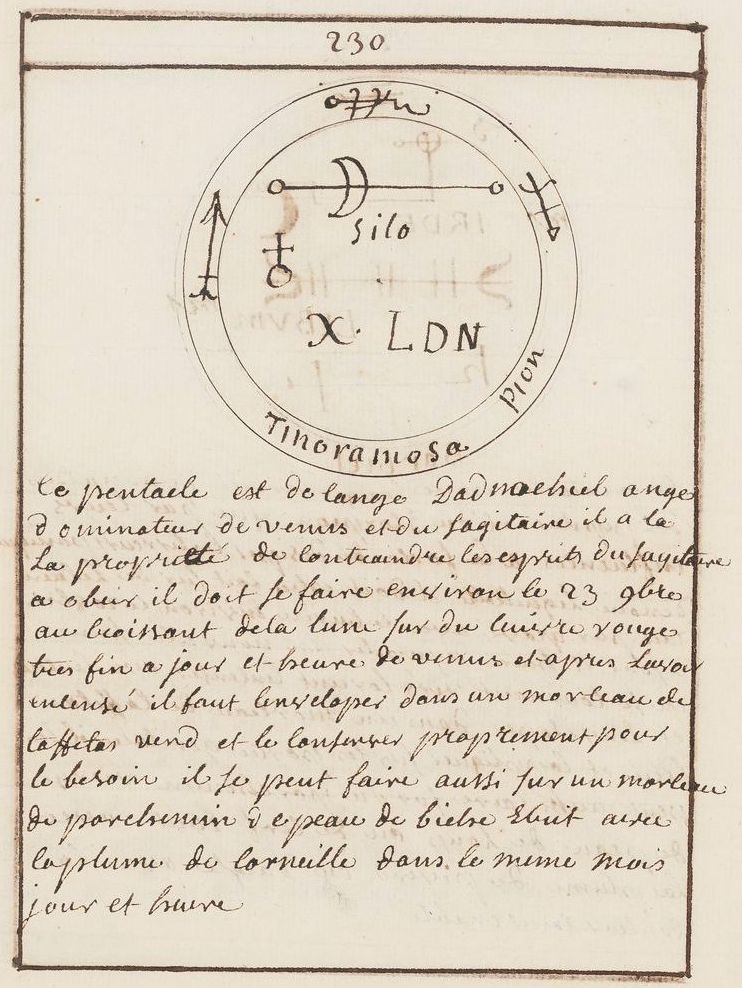 230
Silo
X. LDN
Pion
Tinoramosa
Ce pentacle est de lange Dadnachiel ange
dominateur de venus et du sagitaire il a la
la proprieté de contraindre les esprits du sagitaire
a obeir il doit se faire environ le 23 9bre
au croissant dela lune sur du cuivre rouge
tres fin a jour et heure de venus et apres lavoir
encensé il faut lenveloper dans un morceau de
taffetas verd et le conserver proprement pour
le besoin il se peut faire aussi sur un morceau
de parchemin de peau de biche Ecrit avec
la plume de corneille dans le meme mois
jour et heure